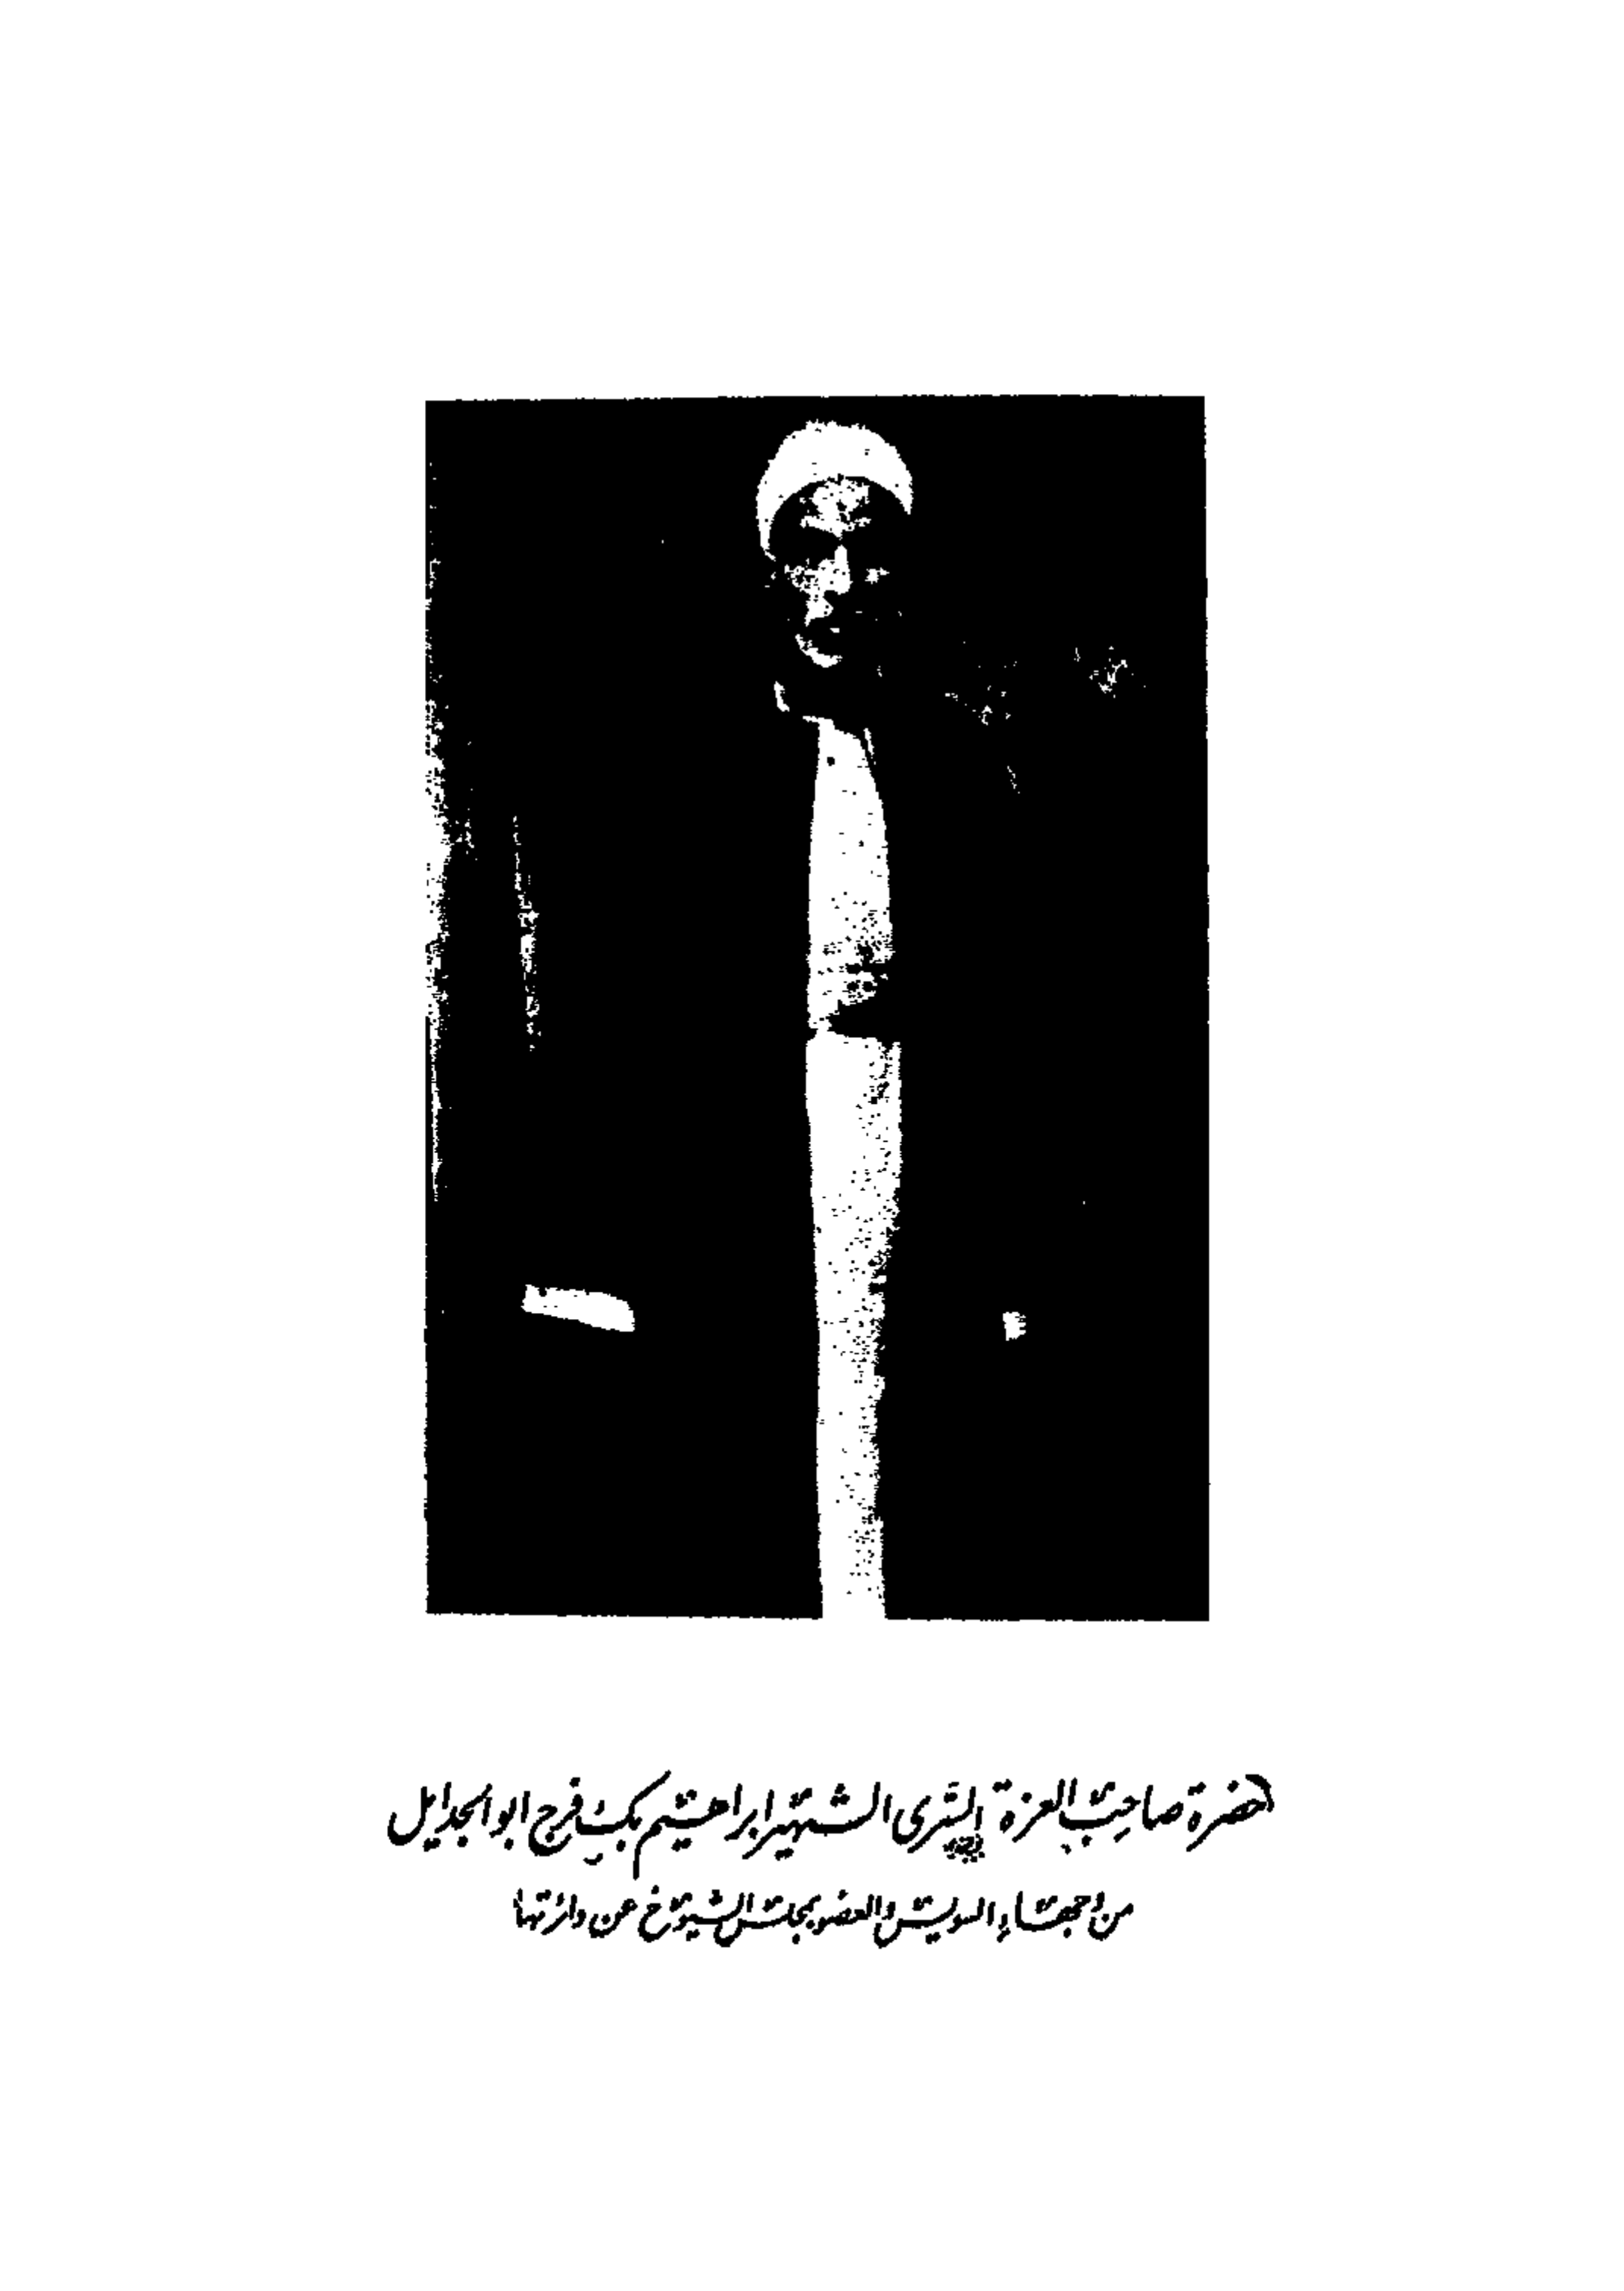 حضرة صاحب العزة السرى الشهير ابراهيم بك فرج ابو الجدايل
من اعيان السويس والعضو بمجلس الشيوخ عن دائرتها